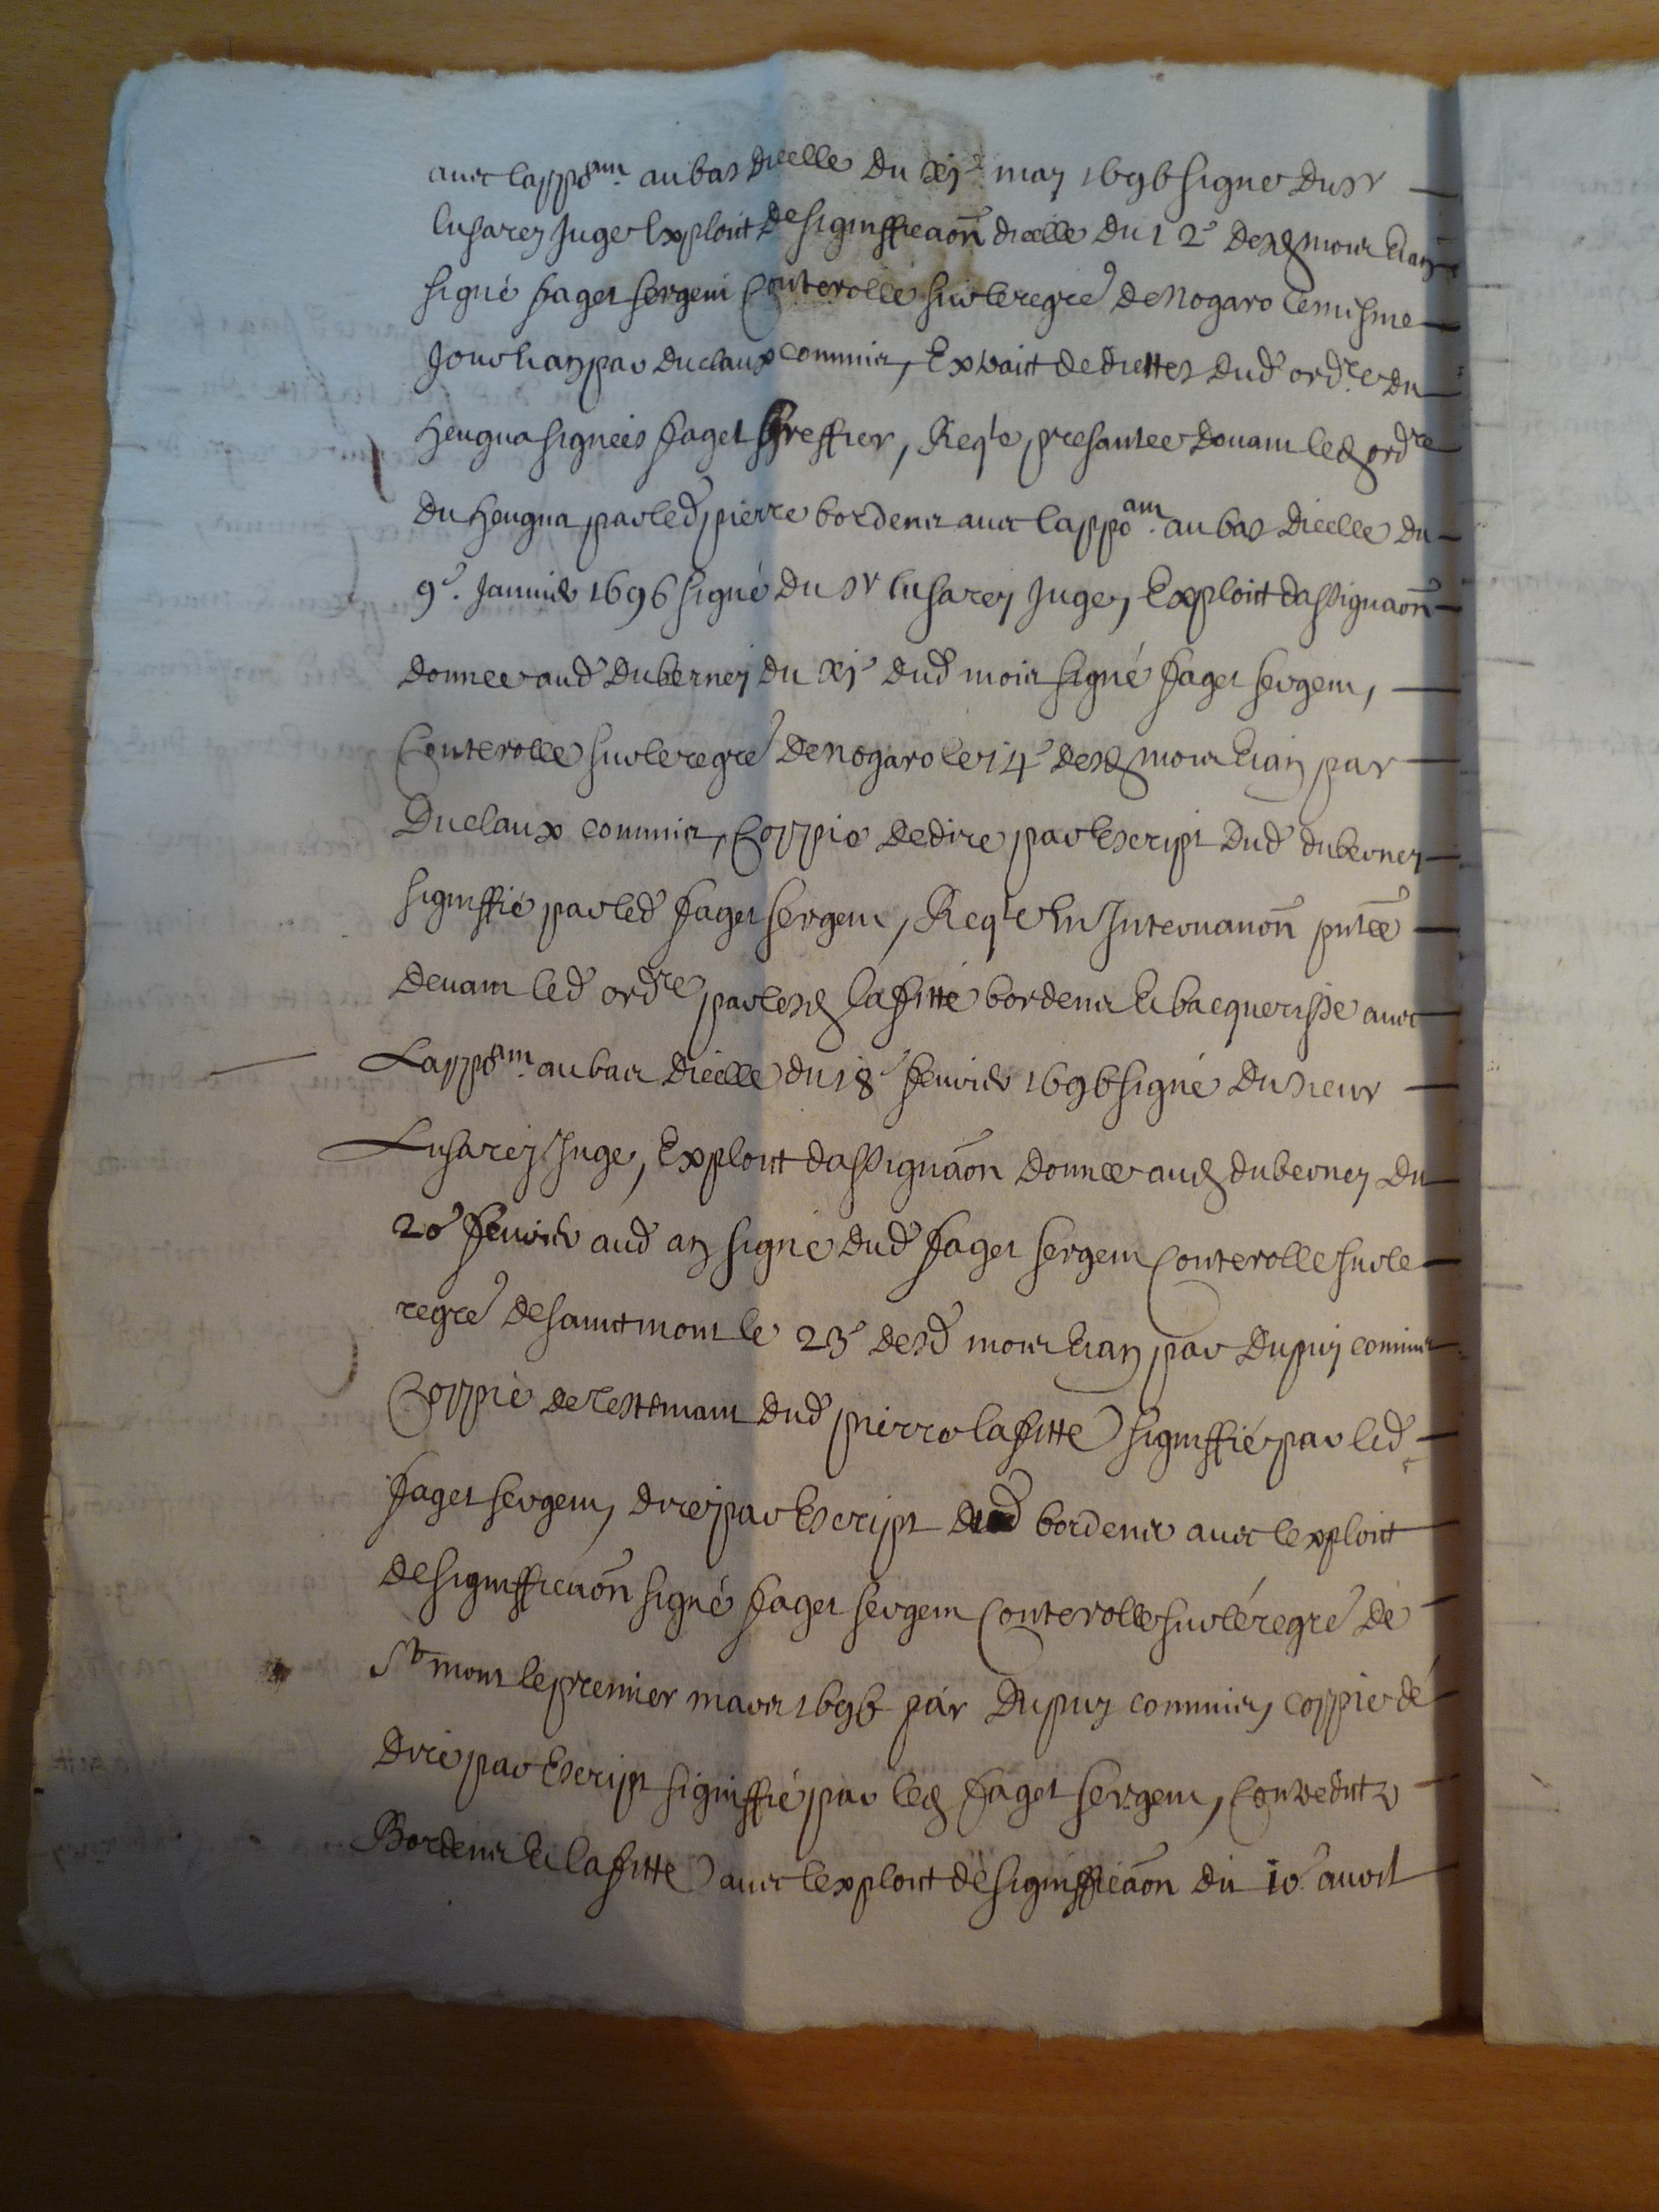 avec lappōam. au bas dicelle du xje may 1696 signé du sr
lusarey juge, exploit de signifficaōn dicelle du 12e desd mois et an
signé faget sergent controlle sur le regre de Nogaro le mesme
jour et an par duclaux commis, Extrait de dicttes dud ordre du
houga signées faget greffier, Reqte presantee devant led ordre
du houga par led pierre bordenis avec lappōam. au bas dicelle du
9e. Janvier 1696 signé du sr lusarey juge, Exploict dassignaōn
donnee aud duberney du xje dud mois signé faget sergent,
Conterolle sur le regre de nogaro le 14e desd mois et an par
Duclaux commis, Coppie de dire par escript dud duberney
signiffié par led faget sergent, Reqte en Intervanōn pntēe
devant led ordre par lesd lafitte bordenis et bacquerisse avec
Lappōam. au bas dicelle du 18e fevrier 1696 signé du sieur
Lusarey juge, Exploit dassignaōn donnee aud duberney du
20e fevrier aud an signé dud faget sergent conterolle sur le
regre de sainct mont le 23e desd mois et an par Dupuy commis
Coppie de testemant dud pierre lafitte signiffié par led
faget sergent, dire par escript dud bordenis avec lexploit
de signifficaōn signé faget sergent conterolle sur le regre de
St mont le premier mars 1696 par Dupuy commis, coppie de
dire par escript signiffié par led faget sergent, contre dutz
Bordenis et lafitte avec lexploit de signifficaōn du 10e avril